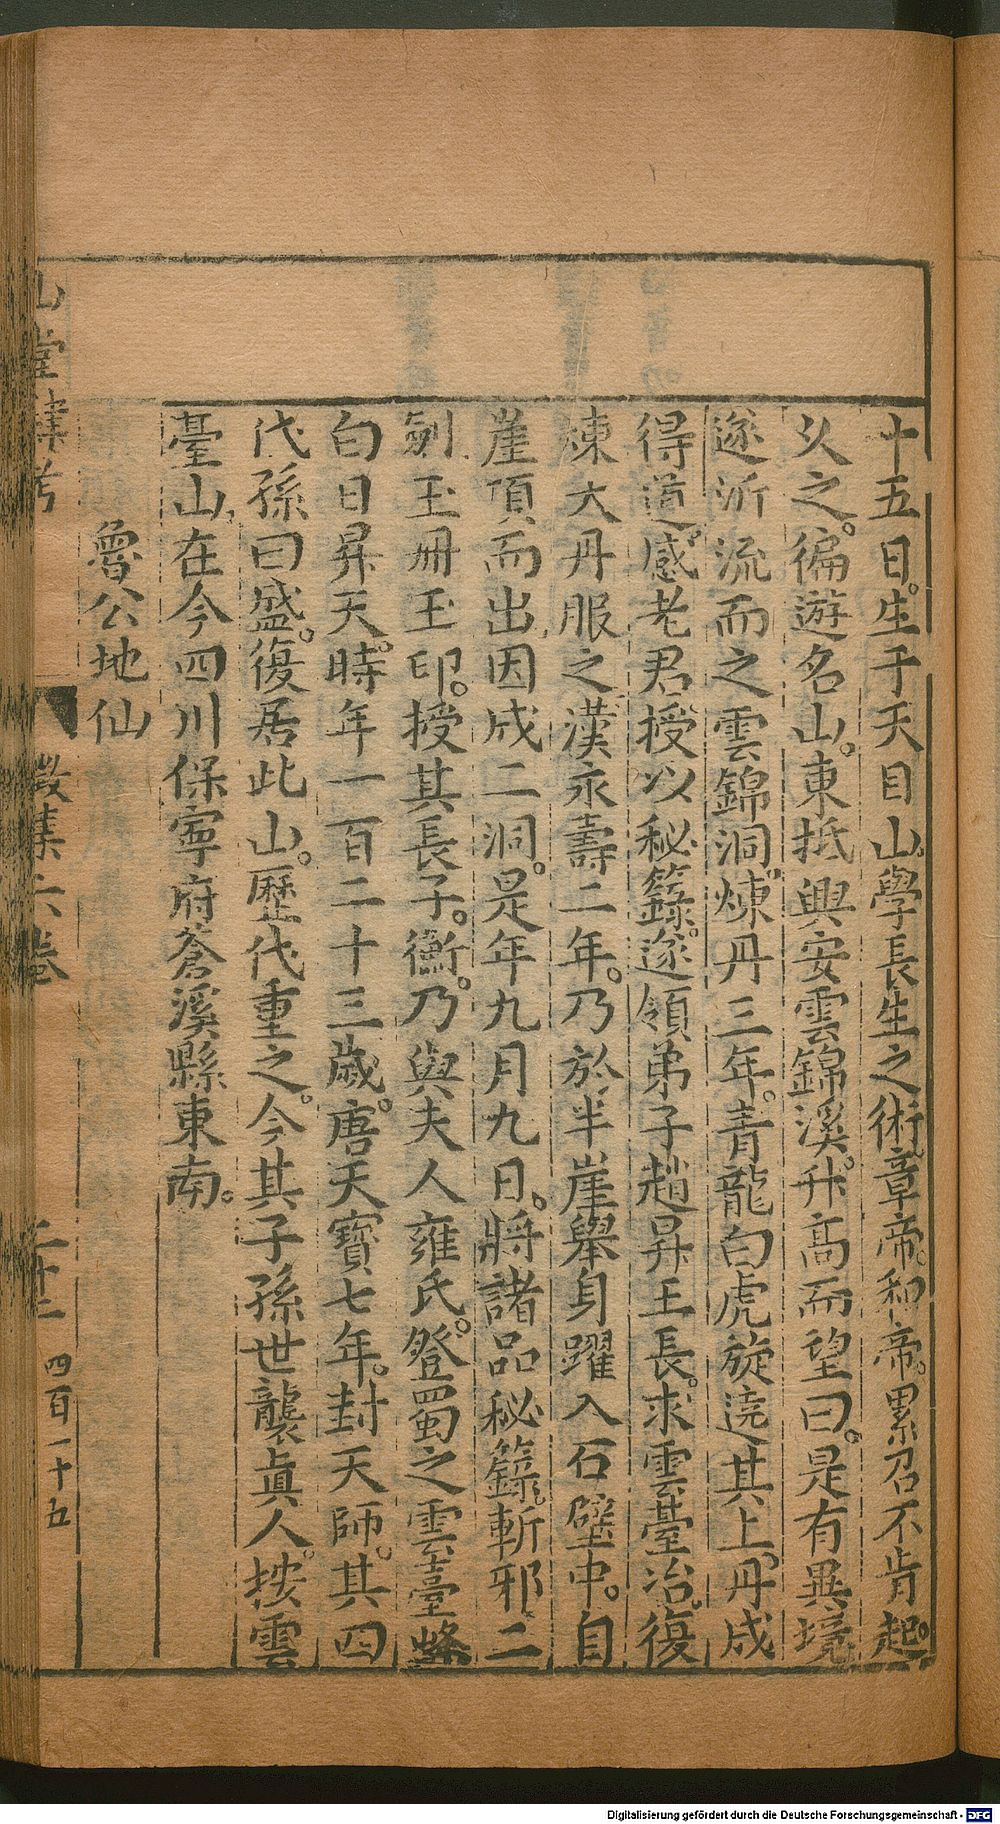 十五日。生于天目山。學長生之術。章帝。和帝。累召不肯起。
久之。徧遊名山。東抵興安雲錦溪。升高而望曰。是有異境
遂泝流而之雲錦洞。煉丹三年。青龍白虎旋遶其上。丹成
得道。感老君。授以秘籙。遂領弟子趙昇王長。求雲臺治。復
煉大丹服之。漢永壽二年。乃於半崖舉身躍入石壁中。自
崖頂而出因成二洞。是年九月九日。將諸品秘籙。斬邪二
劍玉冊玉印。授其長子。衡。乃與夫人雍氏。登蜀之雲臺峰
白日昇天。時年一百二十三歲。唐天寶七年。封天師。其四
代孫曰盛。復居此山。歷代重之。今其子孫世襲真人。按雲
臺山。在今四川保寧府蒼溪縣東南。
魯公地仙
山堂肆考
徵集六卷
二十二
四百一十五
Digitalisierung gefördert durch die Deutsche Forschungsgemeinschaft - DFG